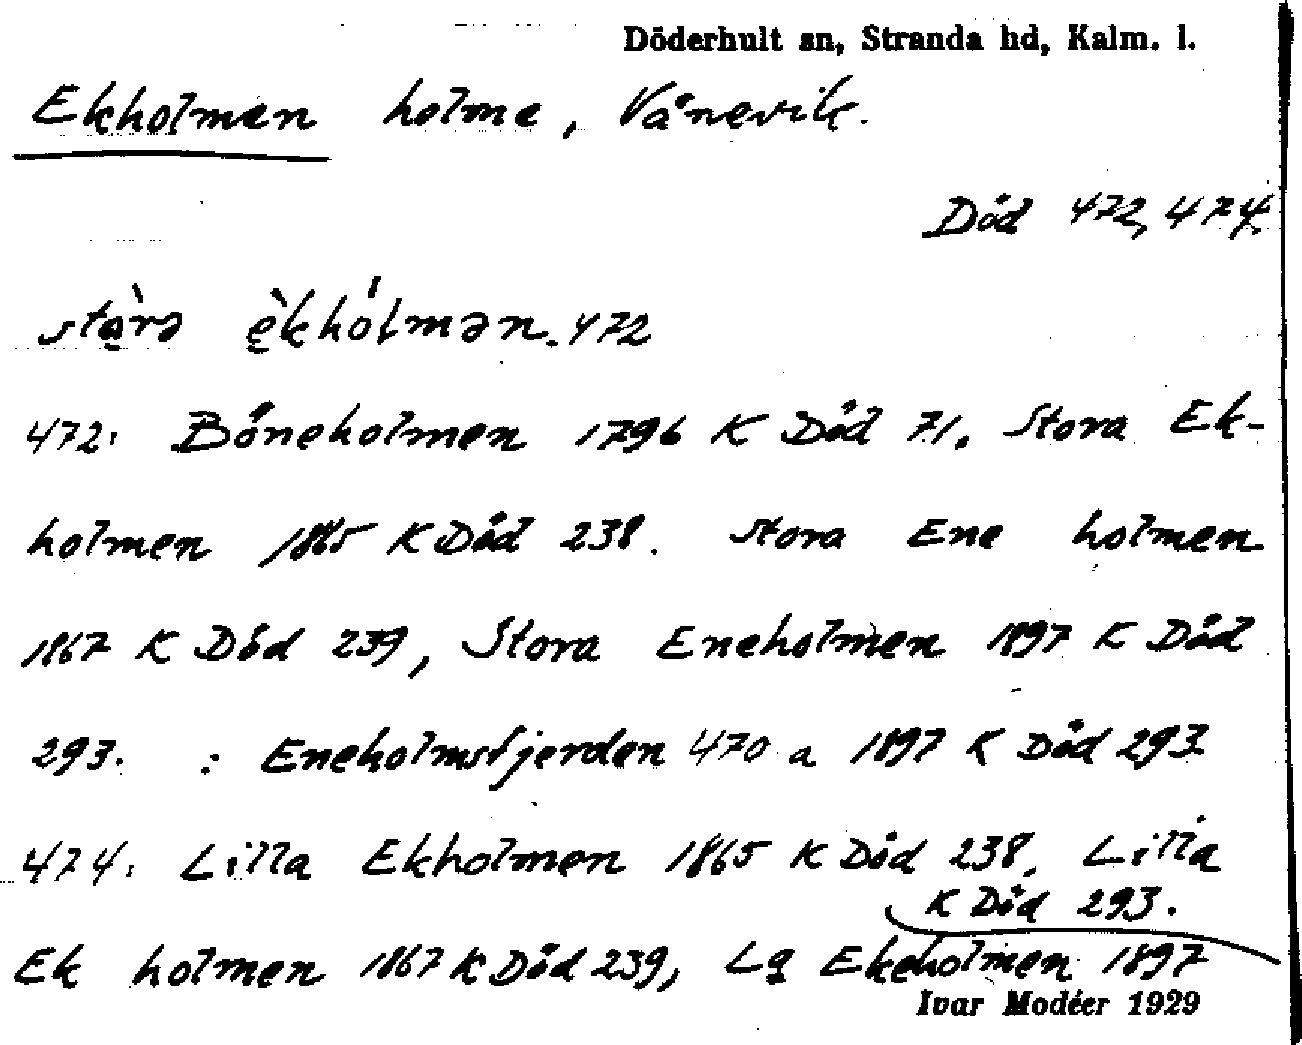 Döderhult sn, Stranda hd, Kalm. l.
Ekholmen holme, Vånevik.
Död 472, 474.
stọ̀rə ẹ̀khólmən. 472
472: Böneholmen 1796 K Död 71. Stora Ek-
holmen 1865 K Död 238. Stora Ene holmen
1867 K Död 239, Stora Eneholmen 1897 K Död
293. : Eneholmsfjerden 470 a 1897 K Död 293
474: Lilla Ekholmen 1865 K Död 238. Lilla
Ek holmen 1867 K Död 239, La Ekeholmen 1897
K Död 293.
Ivar Modéer 1929